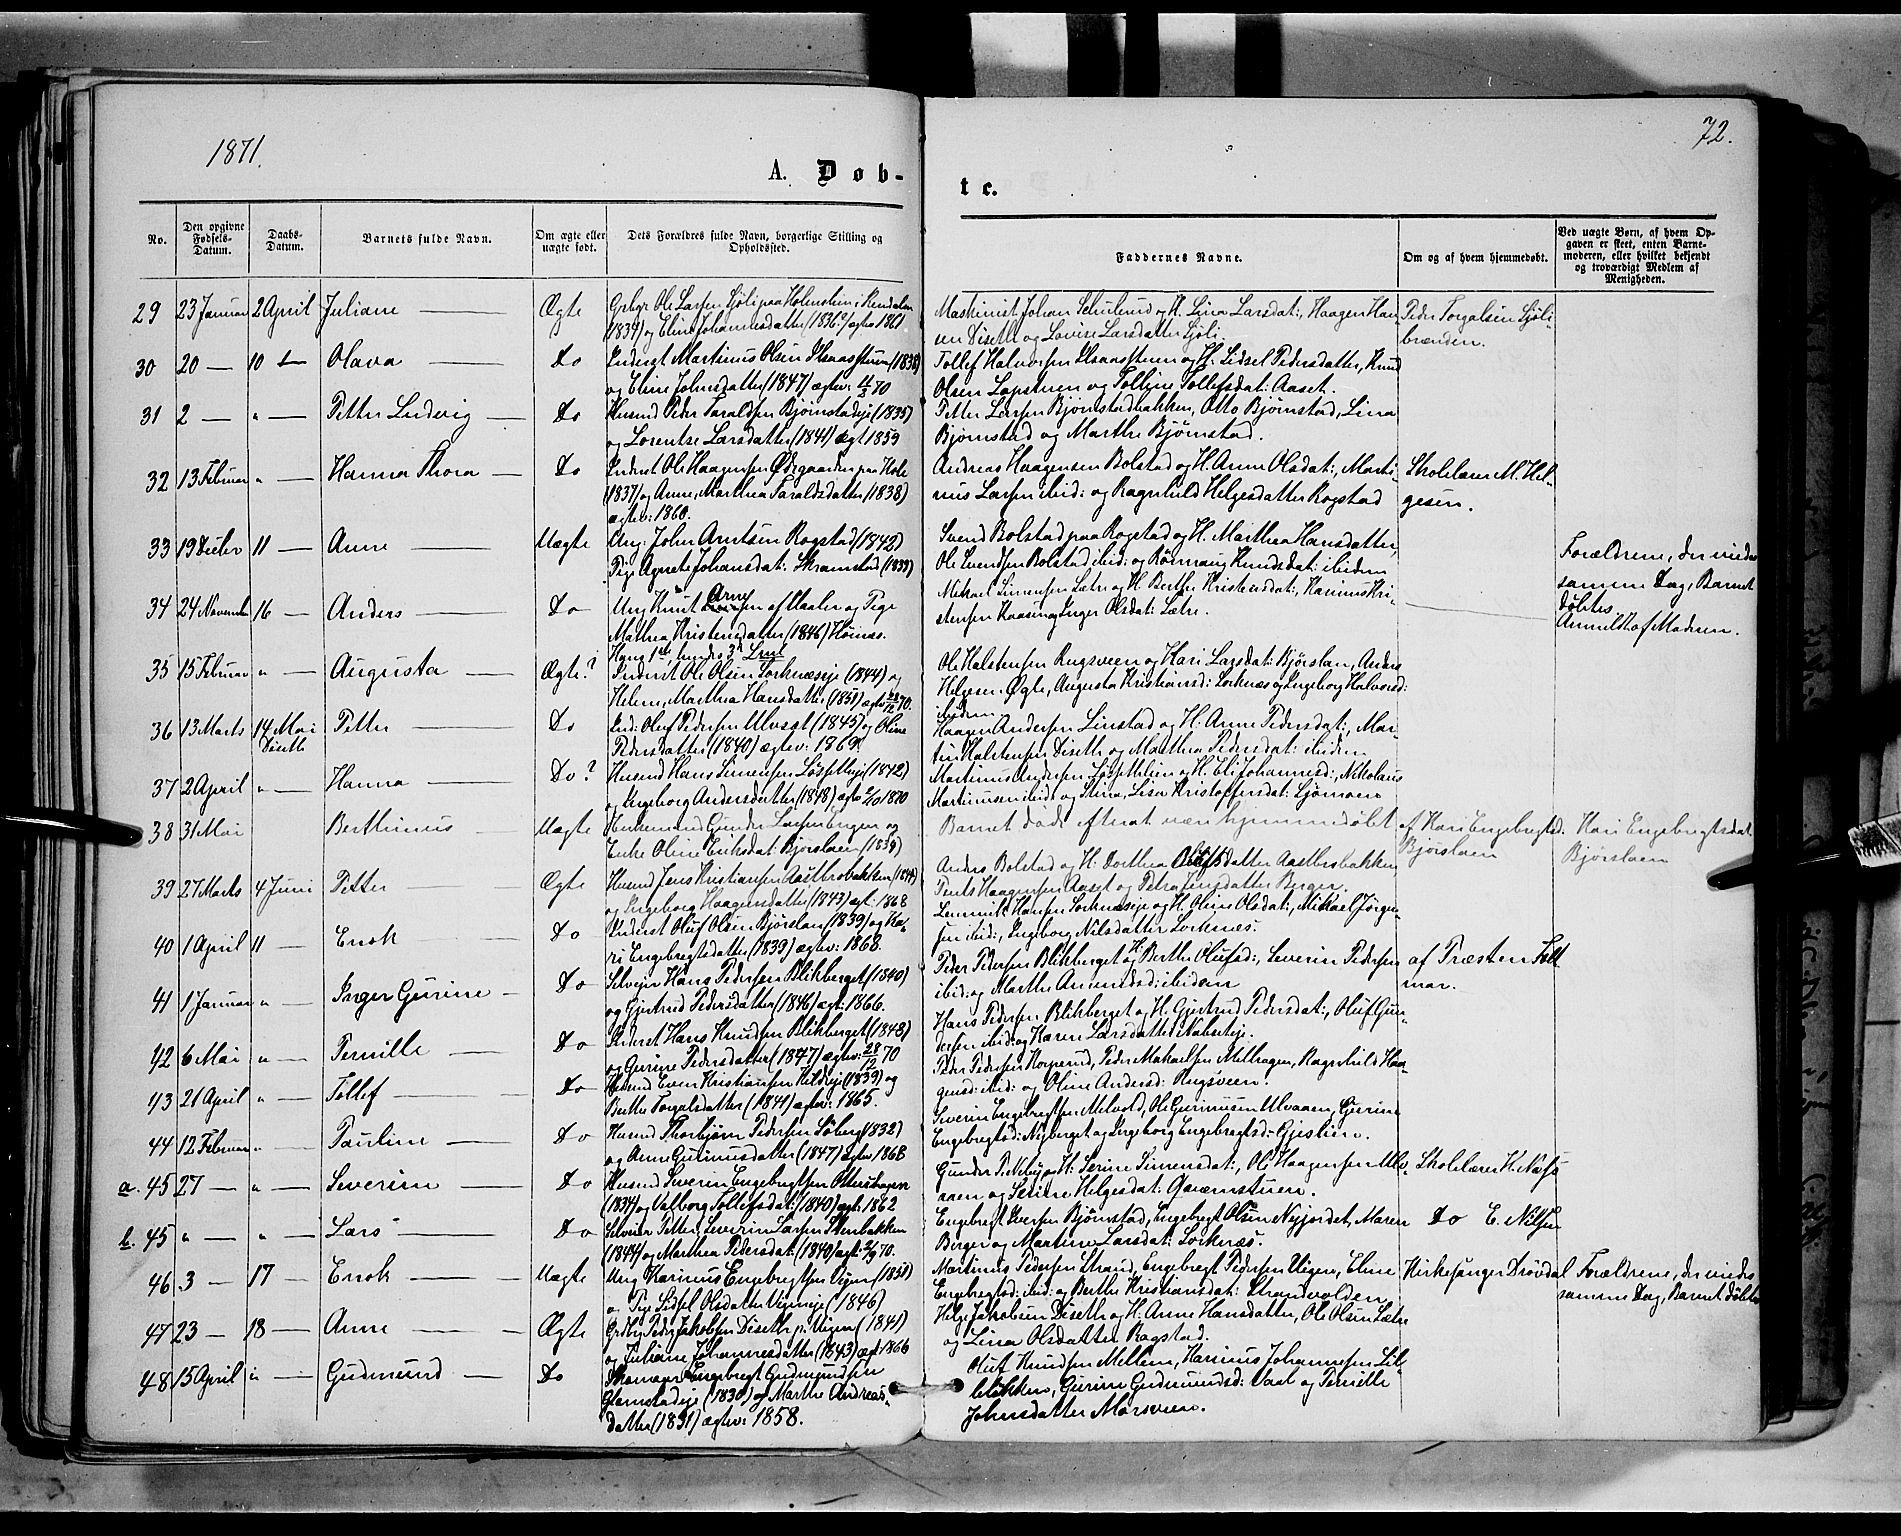 1871.
72.
A. Døb-
te.
No.
Den opgivne Fødsels-Datum.
Daabs-Datum.
Barnets fulde Navn.
Om ægte eller uægte født.
Dets Forældres fulde Navn, borgerlige Stilling og Opholdssted.
Faddernes Navne.
Om og af hvem hjemmedøbt.
Ved uægte Børn, af hvem Opgaven er skeet, enten Barnemoderen, eller hvilket bekjendt og troværdigt Medlem af Menigheden.
29 23 Januar 2 April Juliane Ægte
Ole Larsen Sjøli paa Holmstein i Rendalen
(1839) og Eline Johannesdatter (1836) ægtev 1861
Maskinist Johan Schulerud og H. Lina Larsdat:, Haagen Han-
sen Diseth og Lovise Larsdatter Sjøli.
Peder Torgalsen Sjøli-
brænden.
30 20 — 10 — Olava Do
Inderst Martinus Olsen Ilsaasstuen (1838)
og Eline Johnsdatter (1847) ægtev: 70
Tollef Halvorsen Ilsaasstuen og H. Lidsel Pedersdatter, Knud
Olsen Løpstuen og Tolline Tollefsdat: Aaset.
31 2 — " — Petter Ludvig Do
Husmd Peder Taraldsen Bjørnstadeje (1835)
og Lorentse Larsdatter (1841) ægt 1859
Petter Larsen Bjørnstadbakken, Otto Bjørnstad, Lina
Bjørnstad og Marthe Bjørnstad.
32 13 Februar " — Hanna Thora Do
Inderst Ole Haagensen Ødegaarden paa Hole
(1837) og Anne Marthea Taraldsdatter (1838)
ægtev: 1860.
Andreas Haagensen Bolstad og H. Anne Olsdat:, Marti-
nus Larsen ibid: og Ragnhild Helgesdatter Rogstad
Skolelærer M. Hel-
gesen.
33 19 Decbr 11 — Anne Uægte
Ung: John Arntsen Rogstad (1842)
Pige Agnete Johansdat: Skramstad (1839)
Svend Bolstad paa Rogstad og H. Marthea Hansdatter,
Ole Svendsen Bolstad ibid: og Rønnaug Knudsdat: ibidem
Forældrene, der viedes
samme Dag, Barnet
døbtes
34 24 November 16 — Anders Do
Ung Knut Arnesen af Vaaler og Pige
Mathea Kristensdatter (1846) Hornæs.
Hans 1ste, hendes 3d
Mikael Simensen Sætre og H. Berthe Kristensdat:, Karinus Kri-
stensen Haasen og Inger Olsdat: Sætre.
Anmeldt af Moderen.
35 15 Februar " — Augusta Ægte?
Inderst Ole Olsen Sorknæseje (1844) og
Helene Marthea Hansdatter (1851) ægtev 28/12 70.
Ole Halstensen Rugsveen og Kari Larsdat: Bjørslan, Anders
Helgesen Øgle, Augusta Kristiansd: Sorknæs og Ingeborg Halvorsd:
ibidem
36 13 Marts 14 Mai Diseth Petter Do
Ind: Oluf Pedersen Ulvsgt (1845) og Oline
Pedersdatter (1840) ægtev: 1869
Haagen Andersen Linstad og H. Anne Pedersdat:, Mar-
tin Halstensen Diseth og Marthea Pedersdat: ibidem
37 2 April " — Hanna Do?
Husmd Hans Simensen Løsseteje (1842)
og Ingeborg Andersdatter (1848) ægtev 1870
Martinus Andersen Løssetlien og H. Eli Johannesd:, Nikolaus
Martinussen ibid: og Stina, Lisa Kristoffersdat: Sjømoen
38 31 Mai Berthinus Uægte
Enkemand Gunder Larsen Engen og
Enke Oline Eriksdat: Bjørslaen (1839)
Barnet døde efter at være hjemmedøbt
af Kari Engebregtsd.
Bjørslaen
Kari Engebregtsdat
Bjørslaen
39 27 Marts 4 Juni Petter Ægte
Husmd Jens Kristiansen Aasthrobakken (1844)
og Ingeborg Haagensdatter (1843) ægt: 1868
Anders Bolstad og H: Dorthea Olufsdatter Aasthrobakken
Pents Haagensen Aaset og Petra Jensdatter Berger.
40 1 April 11 — Enok Do
Inderst Oluf Olsen Bjørslan (1839) og Ka-
ri Engebregtsdatter (1839) ægtev: 1868.
Lemmik Hansen Sorknæseje og H. Oline Olsdat:, Mikael Jørgen-
sen ibid:, Ingeborg Nilsdatter Sorknæs.
41 1 Januar " — Inger Gurine Do
Selvejer Hans Pedersen Blikberget (1840)
og Gjertrud Pedersdatter (1846) ægt: 1866.
Peder Pedersen Blikberget og H. Berthe Olufsd:, Severin Pedersen
ibid: og Marthe Amundsd: ibidem
af Præsten Foll
mar.
42 6 Mai " — Pernille Do
Inderst Hans Knudsen Blikberget (1848)
og Gurine Pedersdatter (1847) ægtev: 28/12 70
Hans Pedersen Blikberget og H. Gjertrud Pedersdat:, Oluf Gun-
dersen ibid: og Karen Larsdatter Nabseteje.
43 21 April " — Tollef Do
Husmd Even Kristiansen Kildeeje (1839) og
Berthe Torgalsdatter (1841) ægtev: 1865.
Peder Pedersen Korperud, Peder Mikaelsen Melhagen, Ragnhild Haa-
gensd: ibid: og Oline Andersd: Rugsveen.
44 12 Februar " — Pauline Do
Husmd Thorbjørn Pedersen Søberg (1832)
og Anne Gunnusdatter (1847) ægtev 1868
Severin Engebregtsen Melvold, Ole Gunnusen Ulvaaen, Gurine
Engebregtsd: Nyberget og Ingeborg Engebregtsd: Gjestien.
a. 45 27 — " — Severin Do
Husmd Severin Engebregtsen Ottershagen
(1834) og Valborg Tollefsdat: (1840) ægt: 1862
Gunder P. Neby og H. Serine Simensdat:, Ole Haagensen Ulv-
aaen og Serine Helgesdat: Qværnstuen.
Skolelærer K. Næss
b. 45 " — " — Lars Do
Selveier Petter Severin Larsen Stenbakken
(1844) og Marthea Pedersdat: (1840) ægt: 70.
Engebregt Iversen Bjørnstad, Engebregt Olsen Nyjordet, Maren
Berger og Martine Larsdat: Sorknæs.
Do E. Nilsen
46 3 — 17 — Enok Uægte
Ung Karinus Engebregtsen Vigen (1851)
og Pige Sidsel Olsdatter Vigeneje (1846)
Martinus Pedersen Strand, Engebregt Pedersen Vigen, Eline
Engebregtsd: ibid: og Berthe Kristiansdat: Strandvolden
Kirkesanger Drøvdal
Forældrene, der viedes
samme Dag, Barnet døbtes
47 23 — 18 — Anne Ægte
Peder Jakobsen Diseth p. Vigen (1841)
og Juliane Johannesdatter (1843) ægt 1866
Helge Jakobsen Diseth og H. Anne Hansdatter, Ole Olsen Sætre
og Lina Olsdatter Rogstad.
48 15 April " — Gudmund Do
Skomager Engebregt Gudmundsen
Glomstadeje (1830) og Marthe Andreas-
datter (1831) ægtev: 1858.
Oluf Knudsen Mellem, Karinus Johannesen Lil-
blikken, Gurine Gudmundsd: Vaal og Pernille
Johnsdatter Morsveen.